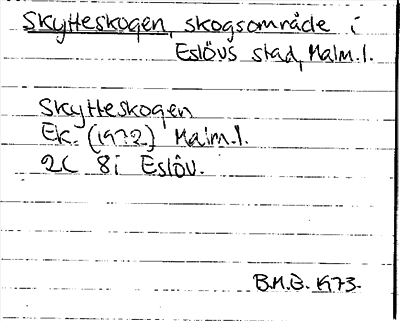 Skytteskogen, skogsområde i
Eslövs stad, Malm.l.
Skytteskogen
Ek. (1972) Malm.l.
2C 8i Eslöv.
B.M.B. 1973.